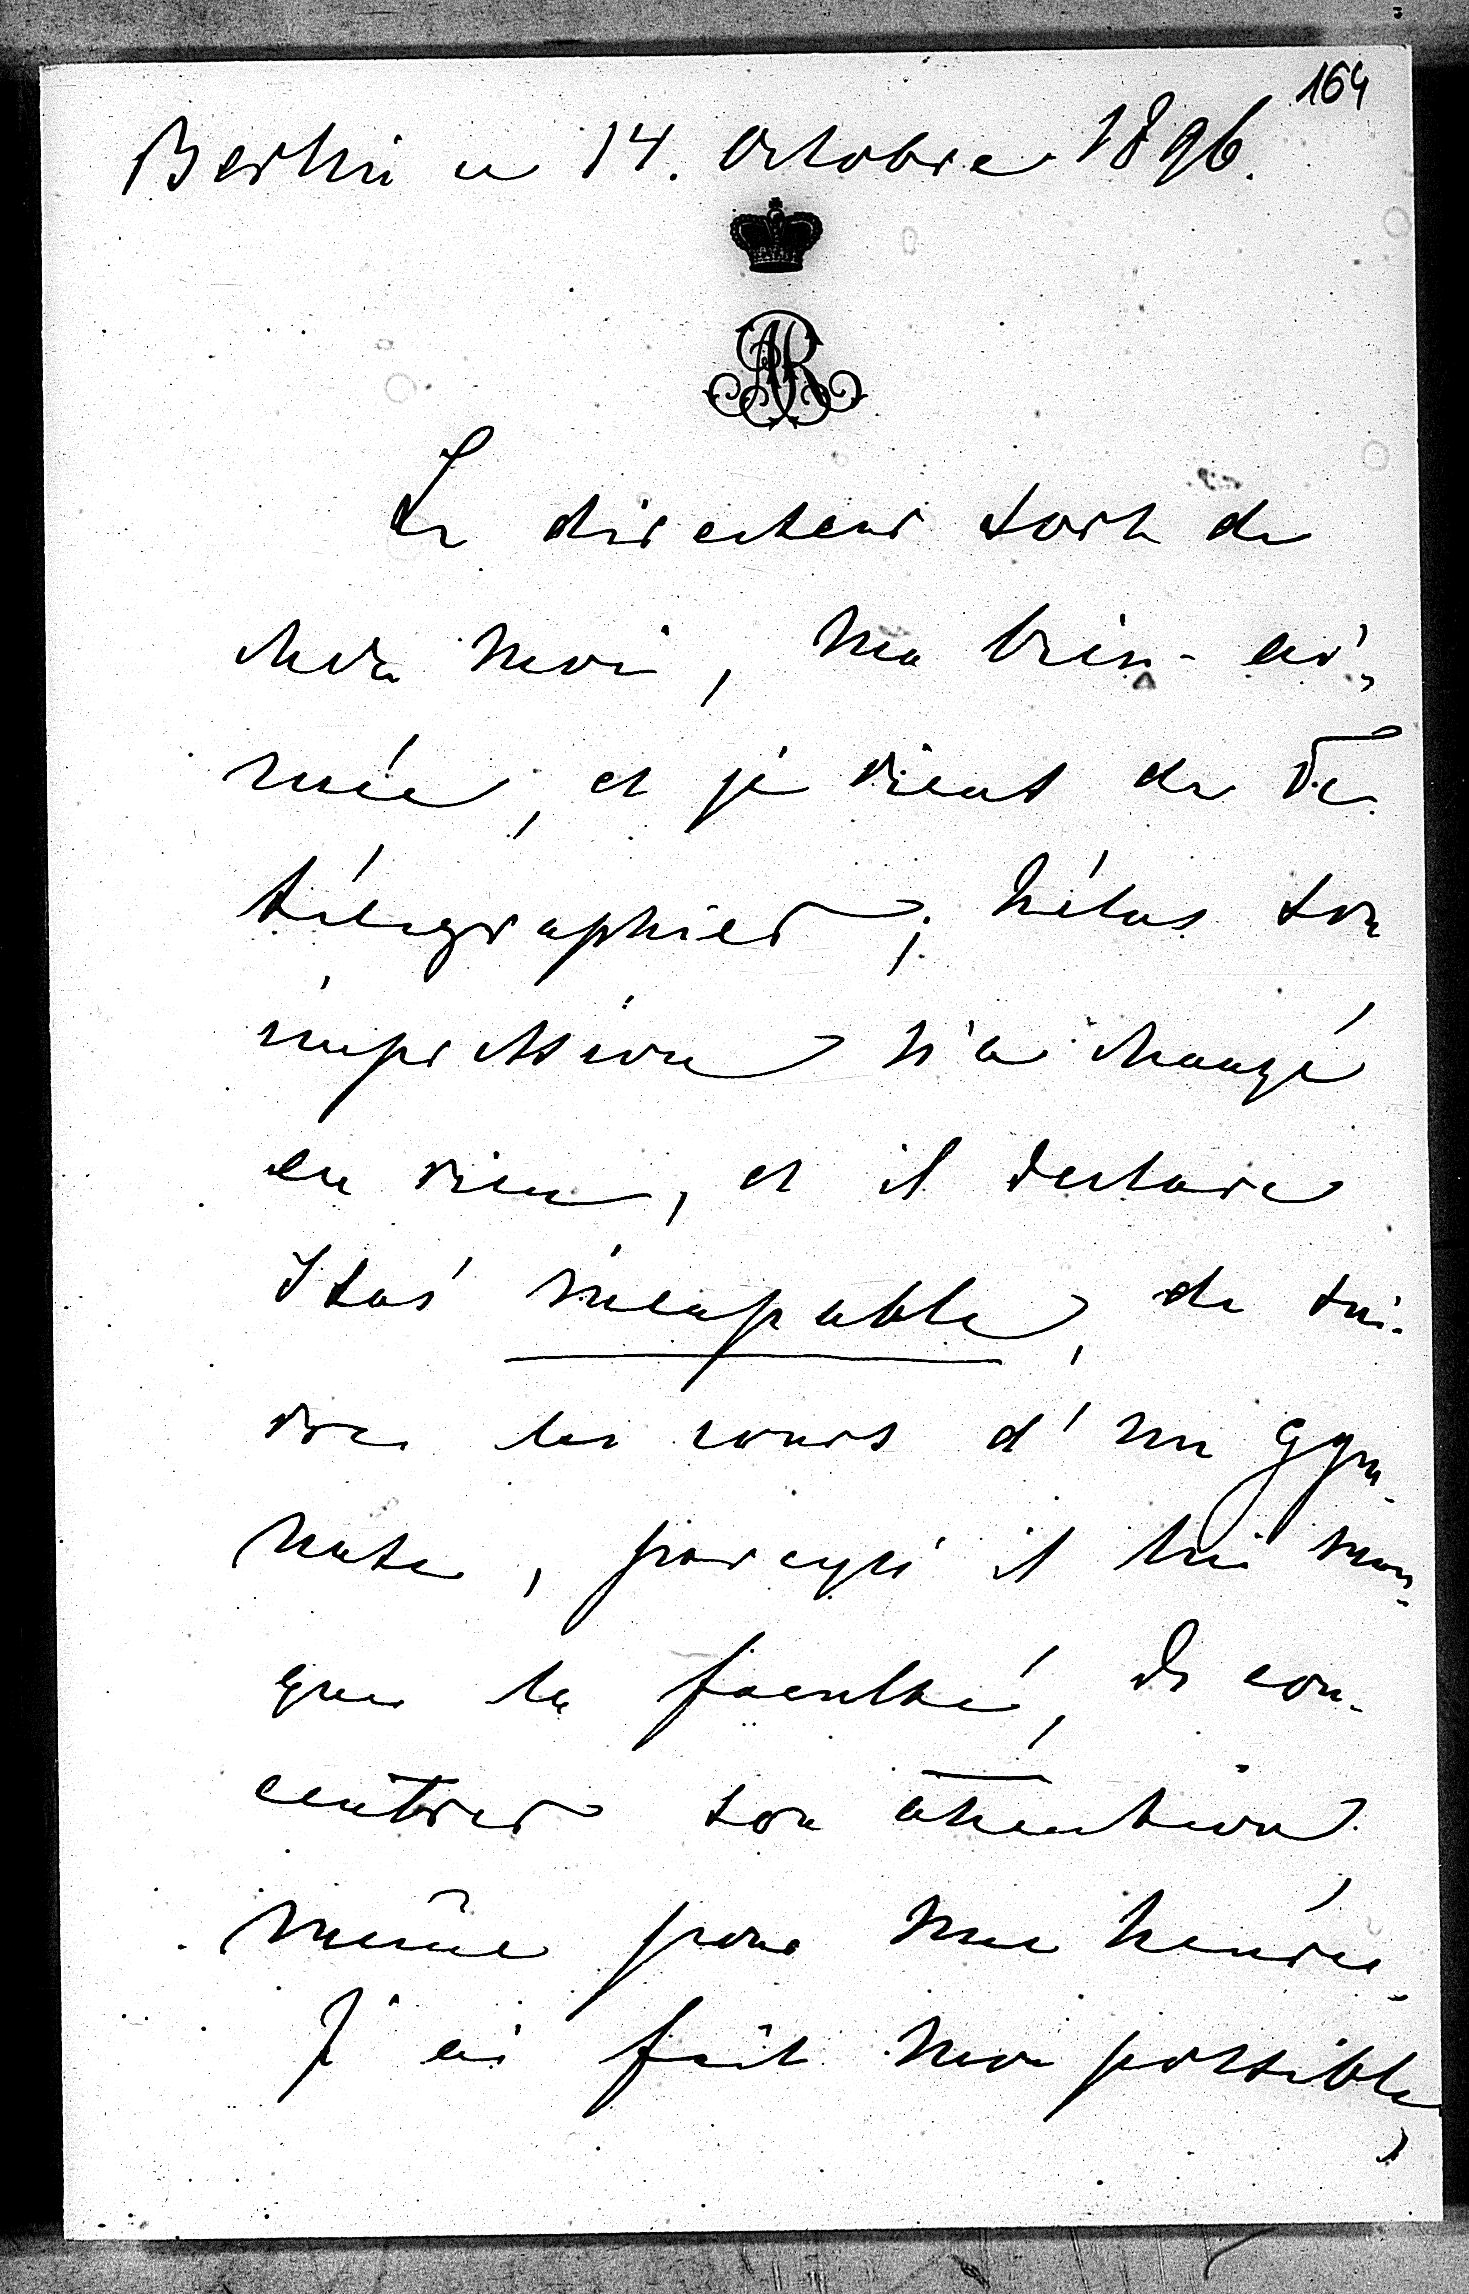 164
Berlin ce 14. Octobre 1896.
AR
Le directeur sort de
chez moi, ma bien-ai-
mée, et je viens de Te
télégraphier; hélas son
impression n'a changé
en rien, et il declare
Stas incapable, de sui-
vre les cours d'un Gym-
nase, parcequ'il lui man-
que la faculté, de con-
centrer son attention,
même pour une heure.
J'ai fait mon possible,